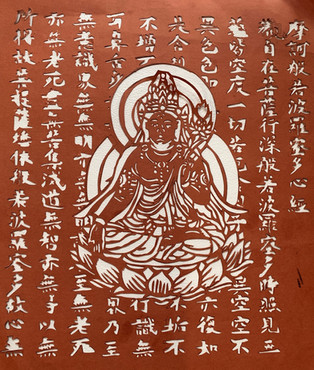 摩訶般若波羅蜜多心経
観自在菩薩行深般若波羅蜜多時照見五
蘊皆空度一切苦厄 異空空不
異色色即 亦復如
是舎利 不垢不
不増不 行識無
耳鼻舌 界乃至
無意識界無無明亦 至無老死
亦無老死尽無苦集滅道無智亦無得以無
所得故菩提薩埵依般若波羅蜜多故心無